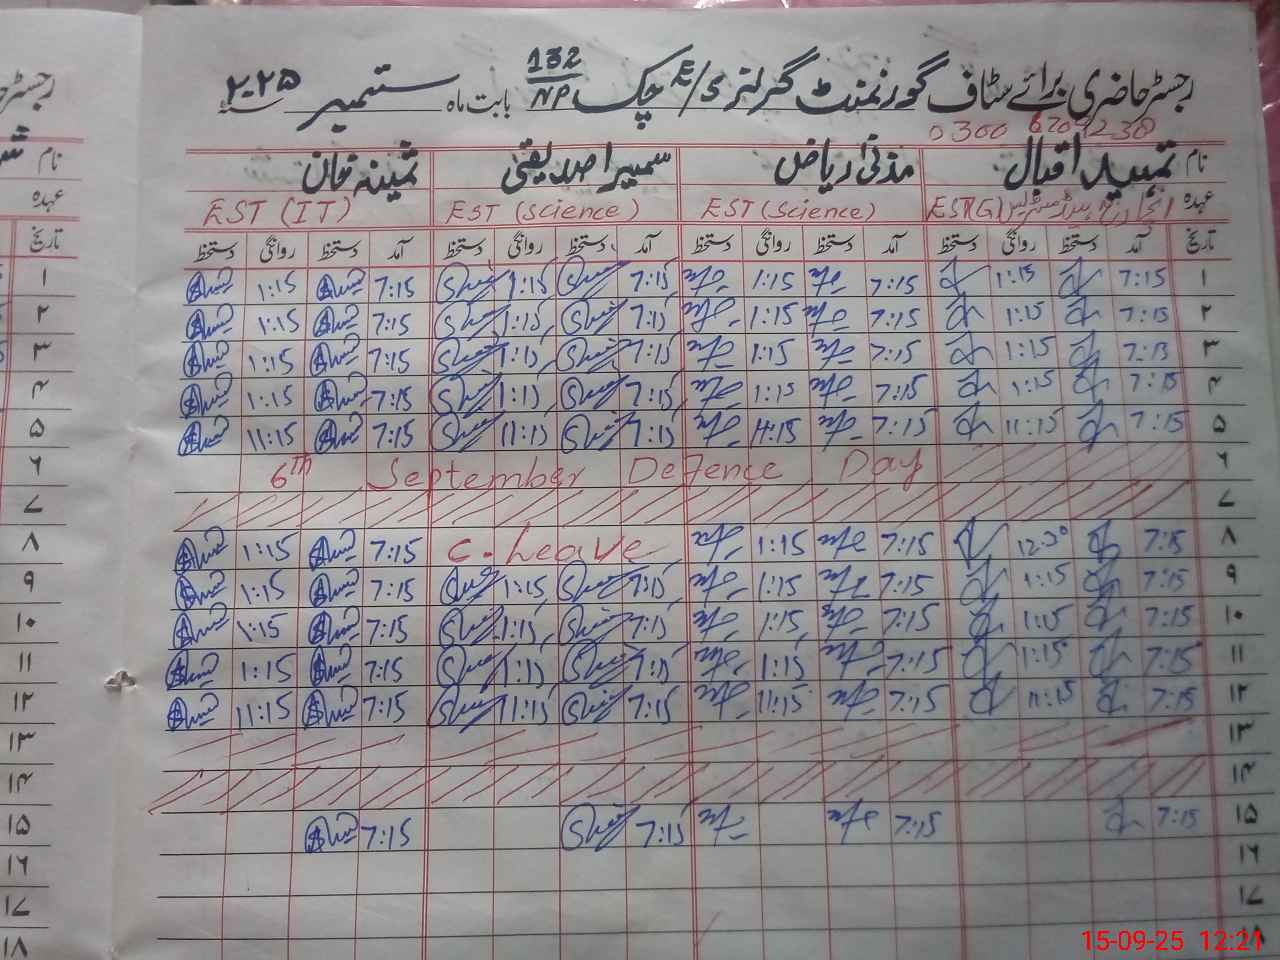 رجسٹر حاضری برائے سٹاف گورنمنٹ گرلز E/S چک 132/NP بابت ماہ ستمبر ۲۰۲۵
0300
نام تہمید اقبال ریاض سمیرا صدیقی ثمینہ خان
عہدہ انچارج ہیڈ مسٹریس EST(G) EST (Science) EST (Science) EST (IT)
تاریخ آمد دستخط روانگی دستخط آمد دستخط روانگی دستخط آمد دستخط روانگی دستخط آمد دستخط روانگی دستخط
۱ 7:15 1:15 7:15 1:15 7:15 1:15 7:15 1:15
۲ 7:15 1:15 7:15 1:15 7:15 1:15 7:15 1:15
۳ 7:15 1:15 7:15 1:15 7:15 1:15 7:15 1:15
۴ 7:15 1:15 7:15 1:15 7:15 1:15 7:15 1:15
۵ 7:15 11:15 7:15 11:15 7:15 11:15 7:15 11:15
۶ 6th September Defence Day
۷
۸ 7:15 12:30 7:15 1:15 C. Leave 7:15 1:15
۹ 7:15 1:15 7:15 1:15 7:15 1:15 7:15 1:15
۱۰ 7:15 1:15 7:15 1:15 7:15 1:15 7:15 1:15
۱۱ 7:15 1:15 7:15 1:15 7:15 1:15 7:15 1:15
۱۲ 7:15 11:15 7:15 11:15 7:15 11:15 7:15 11:15
۱۳
۱۴
۱۵ 7:15 7:15 7:15 7:15
۱۶
۱۷
۱۸
15-09-25 12:21
نام
عہدہ
تاریخ
۱
۲
۳
۴
۵
۶
۷
۸
۹
۱۰
۱۱
۱۲
۱۳
۱۴
۱۵
۱۶
۱۷
۱۸